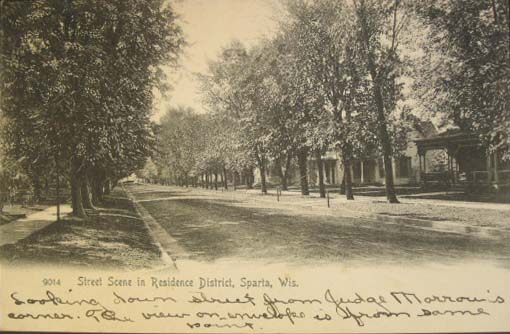 9014 Street Scene in Residence District, Sparta, Wis.
Looking down street from Judge Morrow's
corner. The view on envelope is from same
point.